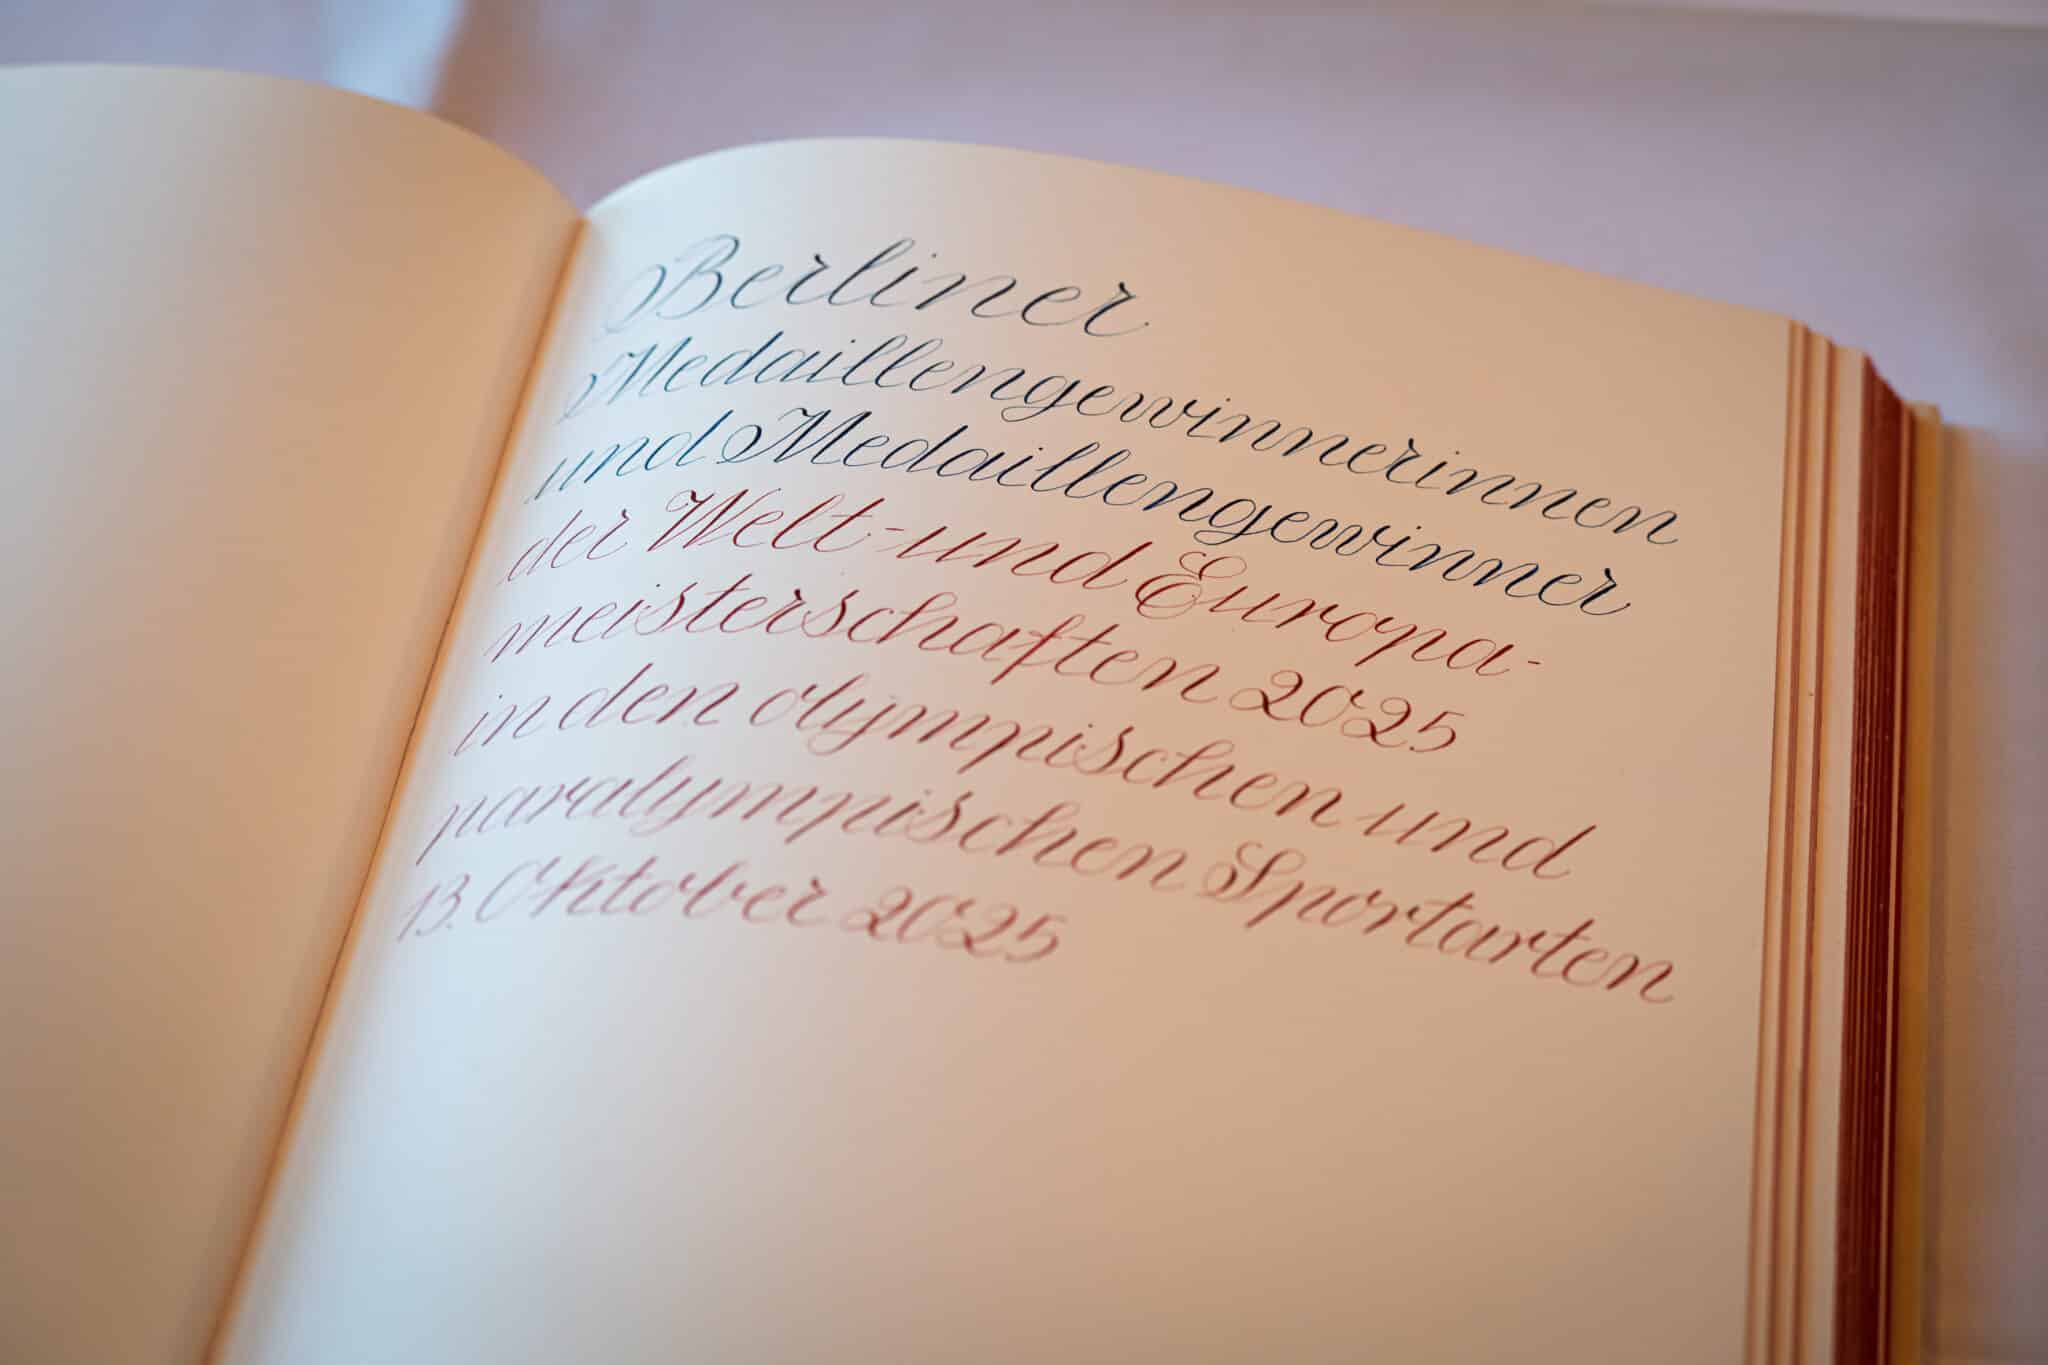 Berliner
Medaillengewinnerinnen
und Medaillengewinner
der Welt- und Europa-
meisterschaften 2025
in den olympischen und
paralympischen Sportarten
13. Oktober 2025